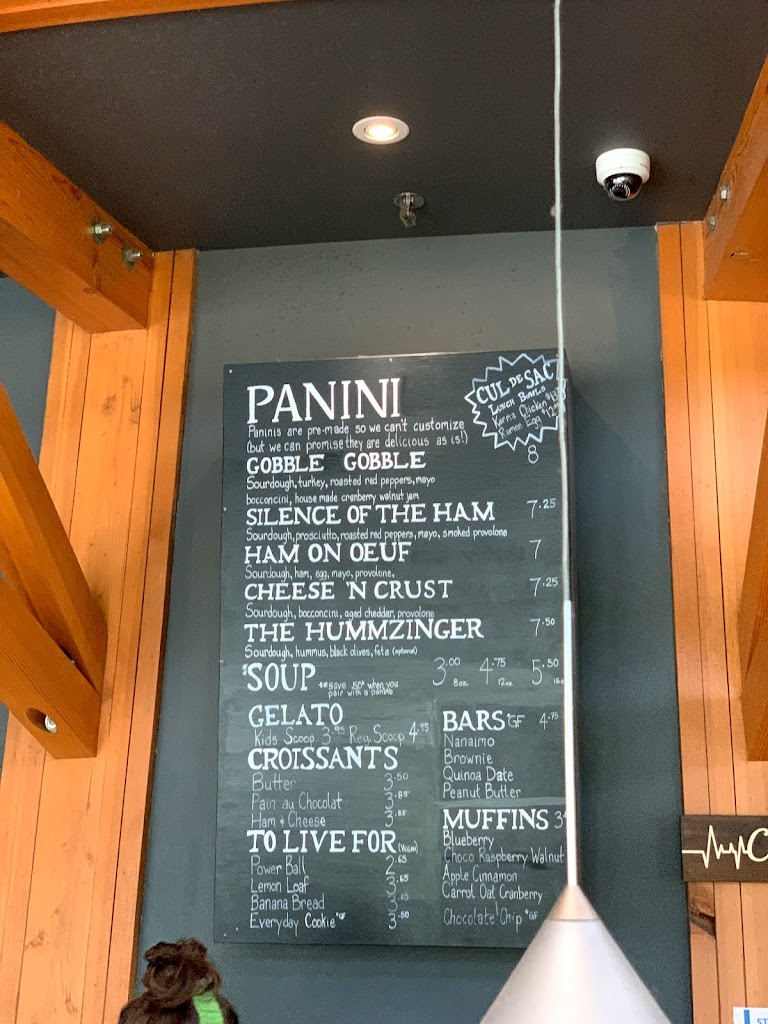 PANINI
CUL DE SAC
LUNCH BOWLS
Karma Chicken
Ramen Egg
Paninis are pre-made so we can't customize
(but we can promise they are delicious as is!)
GOBBLE GOBBLE 8
Sourdough, turkey, roasted red peppers, mayo
bocconcini, house made cranberry walnut jam
SILENCE OF THE HAM 7.25
Sourdough, prosciutto, roasted red peppers, mayo, smoked provolone
HAM ON OEUF 7
Sourdough, ham, egg, mayo, provolone,
CHEESE 'N CRUST 7.25
Sourdough, bocconcini, aged cheddar, provolone
THE HUMMZINGER 7.50
Sourdough, hummus, black olives, feta (optional)
*SOUP **save .50¢ when you
pair with a panini
3.00 4.75 5.50
8oz. 12oz.
GELATO
Kids Scoop 3.95 Reg. Scoop 4.95
CROISSANTS
Butter 3.50
Pain au Chocolat 3.85
Ham + Cheese 3.85
TO LIVE FOR (Vegan)
Power Ball 2.65
Lemon Loaf 3.65
Banana Bread
Everyday Cookie *GF 3.50
BARS *GF 4.75
Nanaimo
Brownie
Quinoa Date
Peanut Butter
MUFFINS
Blueberry
Choco Raspberry Walnut
Apple Cinnamon
Carrot Oat Cranberry
Chocolate Chip *GF